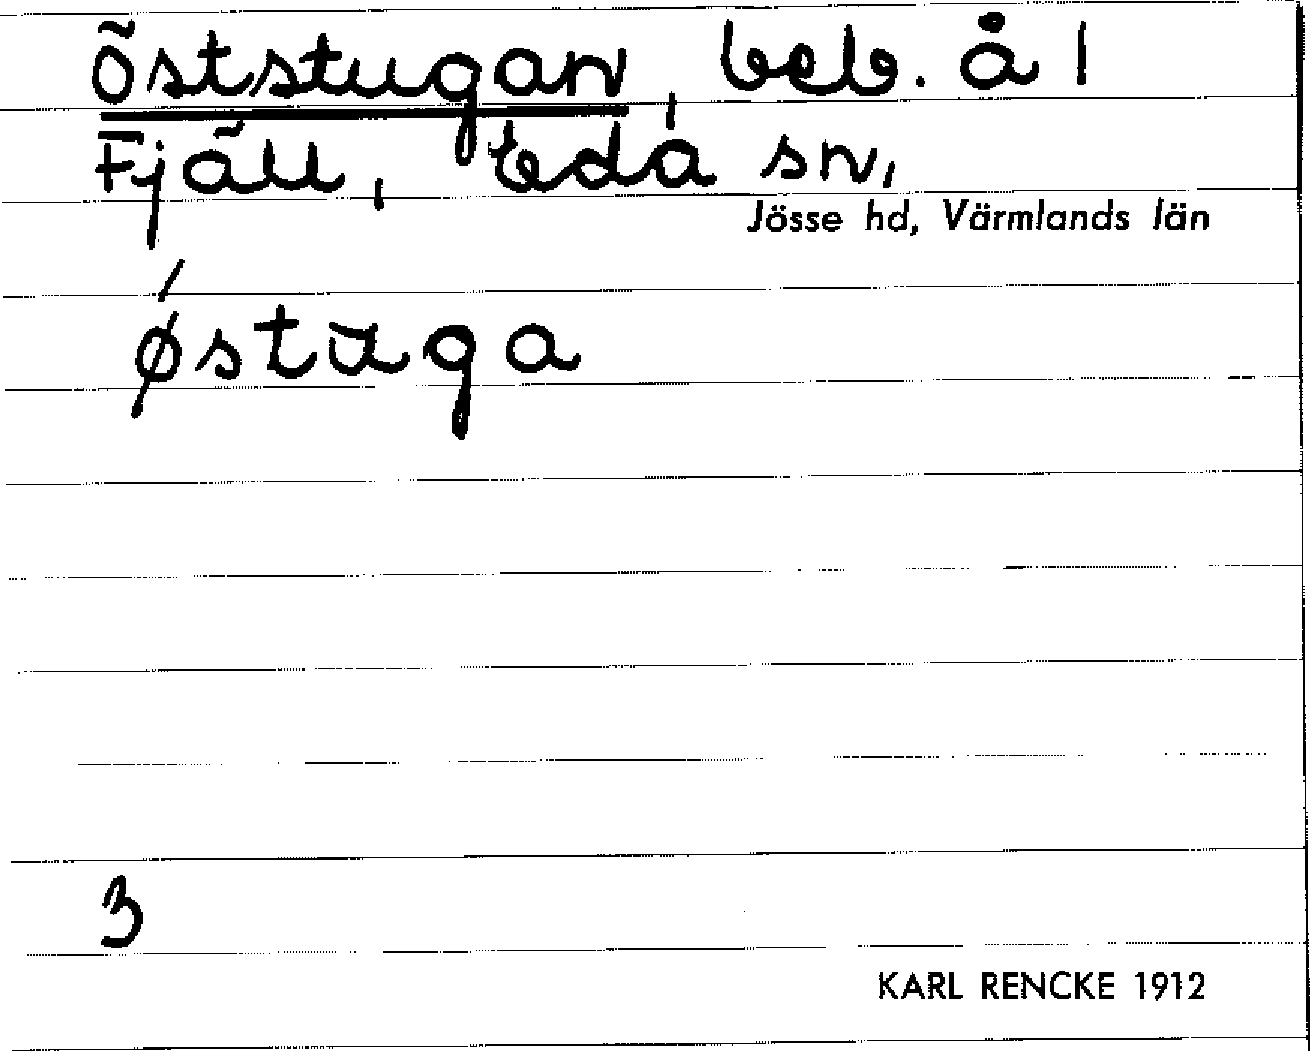 Öststugan, beb. å 1
Fjäll, Eda sn,
Jösse hd, Värmlands län
ǿstuga
3
KARL RENCKE 1912